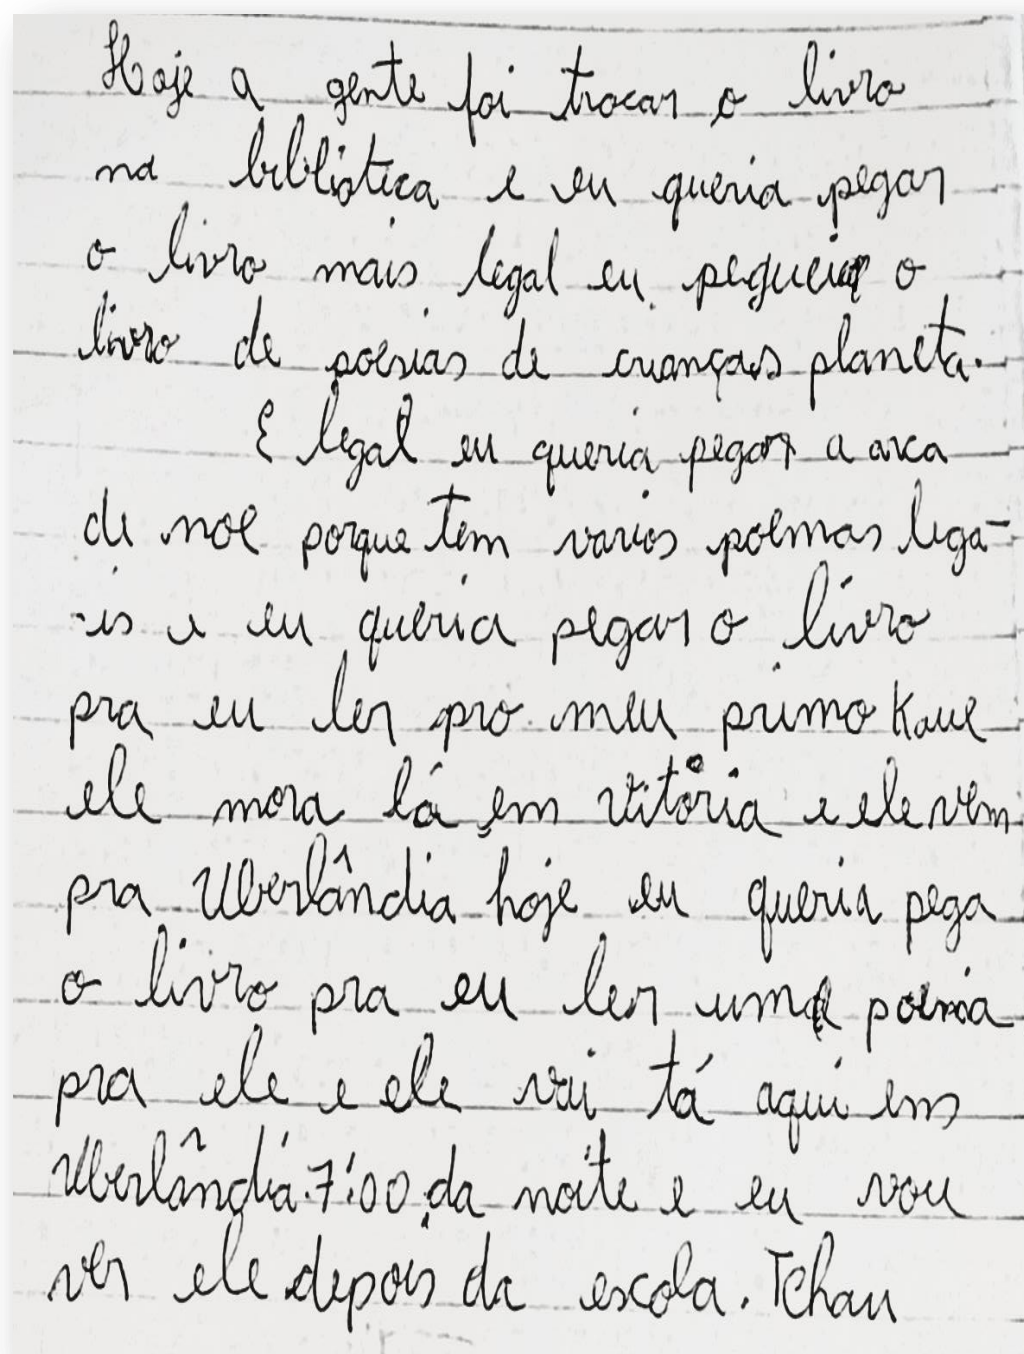 Hoje a gente foi trocar o livro
na biblioteca e eu queria pegar
o livro mais legal eu peguei o
livro de poesias de crianças planeta.
E legal eu queria pegar a arca
de noe porque tem varios poemas lega-
-is e eu queria pegar o livro
pra eu ler pro meu primo Kaue
ele mora lá em Vitória e ele vem
pra Uberlândia hoje eu queria pega
o livro pra eu ler uma poema
pra ele e ele vai tá aqui em
Uberlândia. 7:00 da noite e eu vou
ver ele depois da escola. Tchau